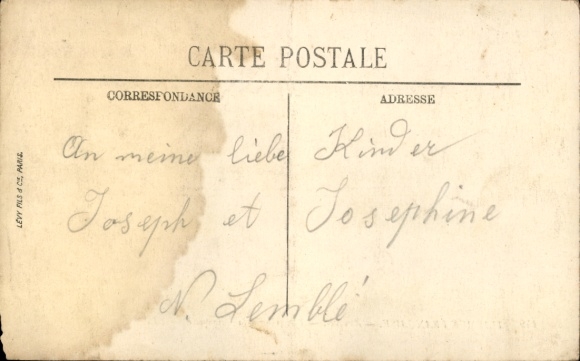 CARTE POSTALE
CORRESPONDANCE
ADRESSE
An meine liebe Kinder
Joseph et Josephine
N. Lemblé
LÉVY FILS & Cie, PARIS.